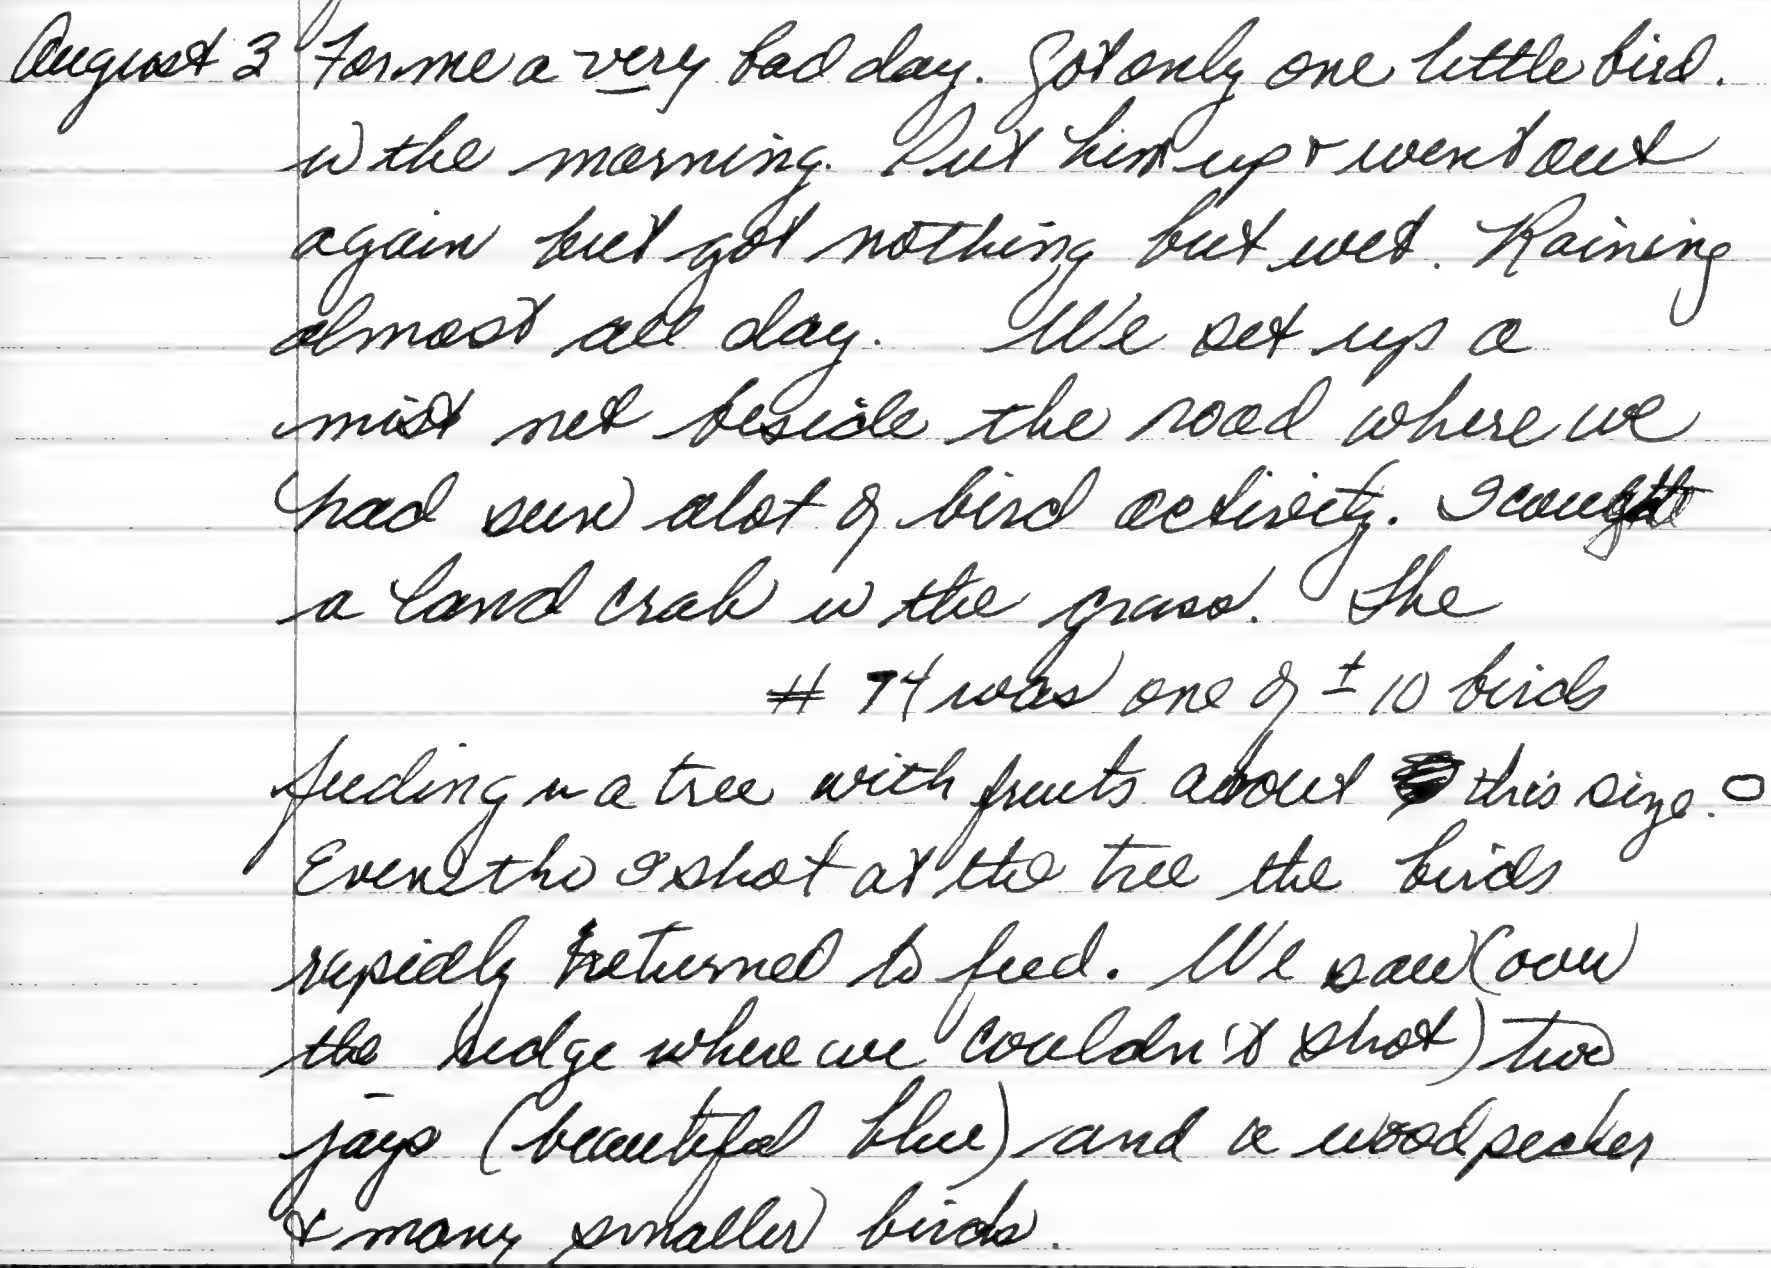 August 3 For me a very bad day. Got only one little bird.
in the morning. Put him up & went out
again but got nothing but wet. Raining
almost all day. We set up a
mist net beside the road where we
had seen alot of bird activity. I caught
a land crab in the grass. The
# 74 was one of ± 10 birds
feeding in a tree with fruits about this size.
Even tho I shot at the tree the birds
rapidly returned to feed. We saw (over
the hedge where we couldn't shot) two
jays (beautiful blue) and a woodpecker
& many smaller birds.